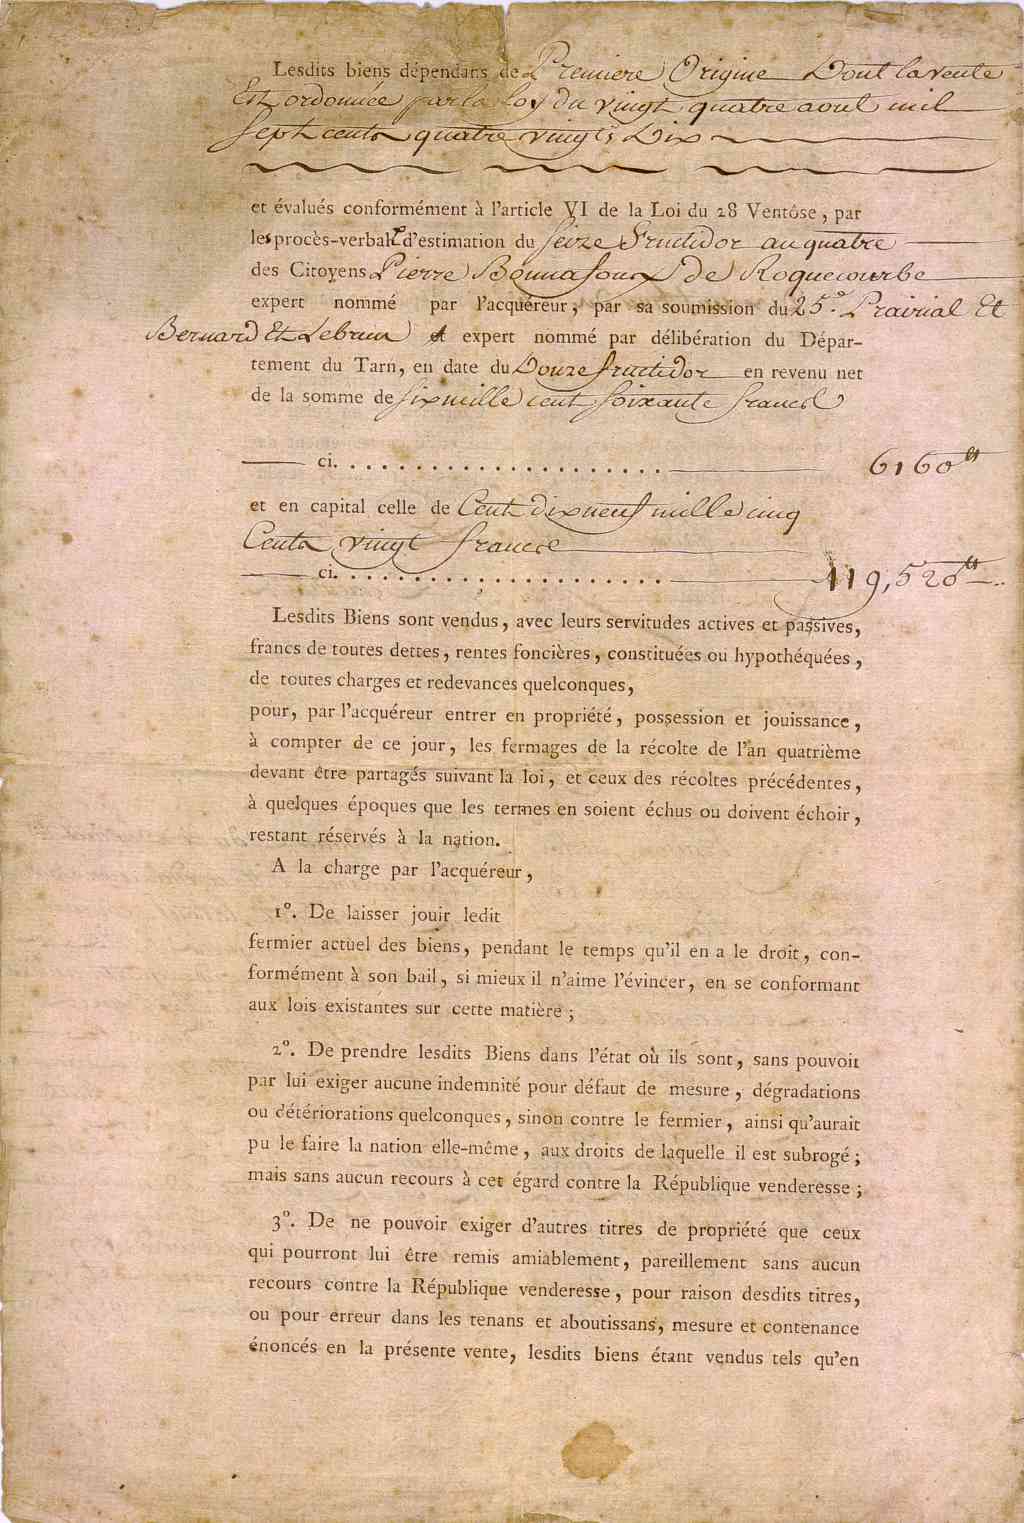 Lesdits biens dépendans de Premiere Origine Dont la vente
Est ordonnée par la Loy du vingt quatre aout mil
Sept cents quatre vingts Dix
et évalués conformément à l'article VI de la Loi du 28 Ventôse, par
les procès-verbal d'estimation du seize Fructidor an quatre
des Citoyens Pierre Bonnafoux de Roquecourbe
expert nommé par l'acquéreur, par sa soumission du 25. Prairial Et
Bernard Et Lebrun expert nommé par délibération du Dépar-
tement du Tarn, en date du Douze fructidor en revenu net
de la somme de six mille cent soixante francs
ci. . . . . . . . . . . . . . . . . . . . . . 6160
et en capital celle de Cent dix neuf mille cinq
Cents vingt francs
ci. . . . . . . . . . . . . . . . . . . . . . 119,520
Lesdits Biens sont vendus, avec leurs servitudes actives et passives,
francs de toutes dettes, rentes foncières, constituées ou hypothéquées,
de toutes charges et redevances quelconques,
pour, par l'acquéreur entrer en propriété, possession et jouissance,
à compter de ce jour, les fermages de la récolte de l'an quatrième
devant être partagés suivant la loi, et ceux des récoltes précédentes,
à quelques époques que les termes en soient échus ou doivent échoir,
restant réservés à la nation.
A la charge par l'acquéreur,
1°. De laisser jouir ledit
fermier actuel des biens, pendant le temps qu'il en a le droit, con-
formément à son bail, si mieux il n'aime l'évincer, en se conformant
aux lois existantes sur cette matière;
2°. De prendre lesdits Biens dans l'état où ils sont, sans pouvoir
par lui exiger aucune indemnité pour défaut de mesure, dégradations
ou détériorations quelconques, sinon contre le fermier, ainsi qu'aurait
pu le faire la nation elle-même, aux droits de laquelle il est subrogé;
mais sans aucun recours à cet égard contre la République venderesse;
3°. De ne pouvoir exiger d'autres titres de propriété que ceux
qui pourront lui être remis amiablement, pareillement sans aucun
recours contre la République venderesse, pour raison desdits titres,
ou pour erreur dans les tenans et aboutissans, mesure et contenance
énoncés en la présente vente, lesdits biens étant vendus tels qu'en